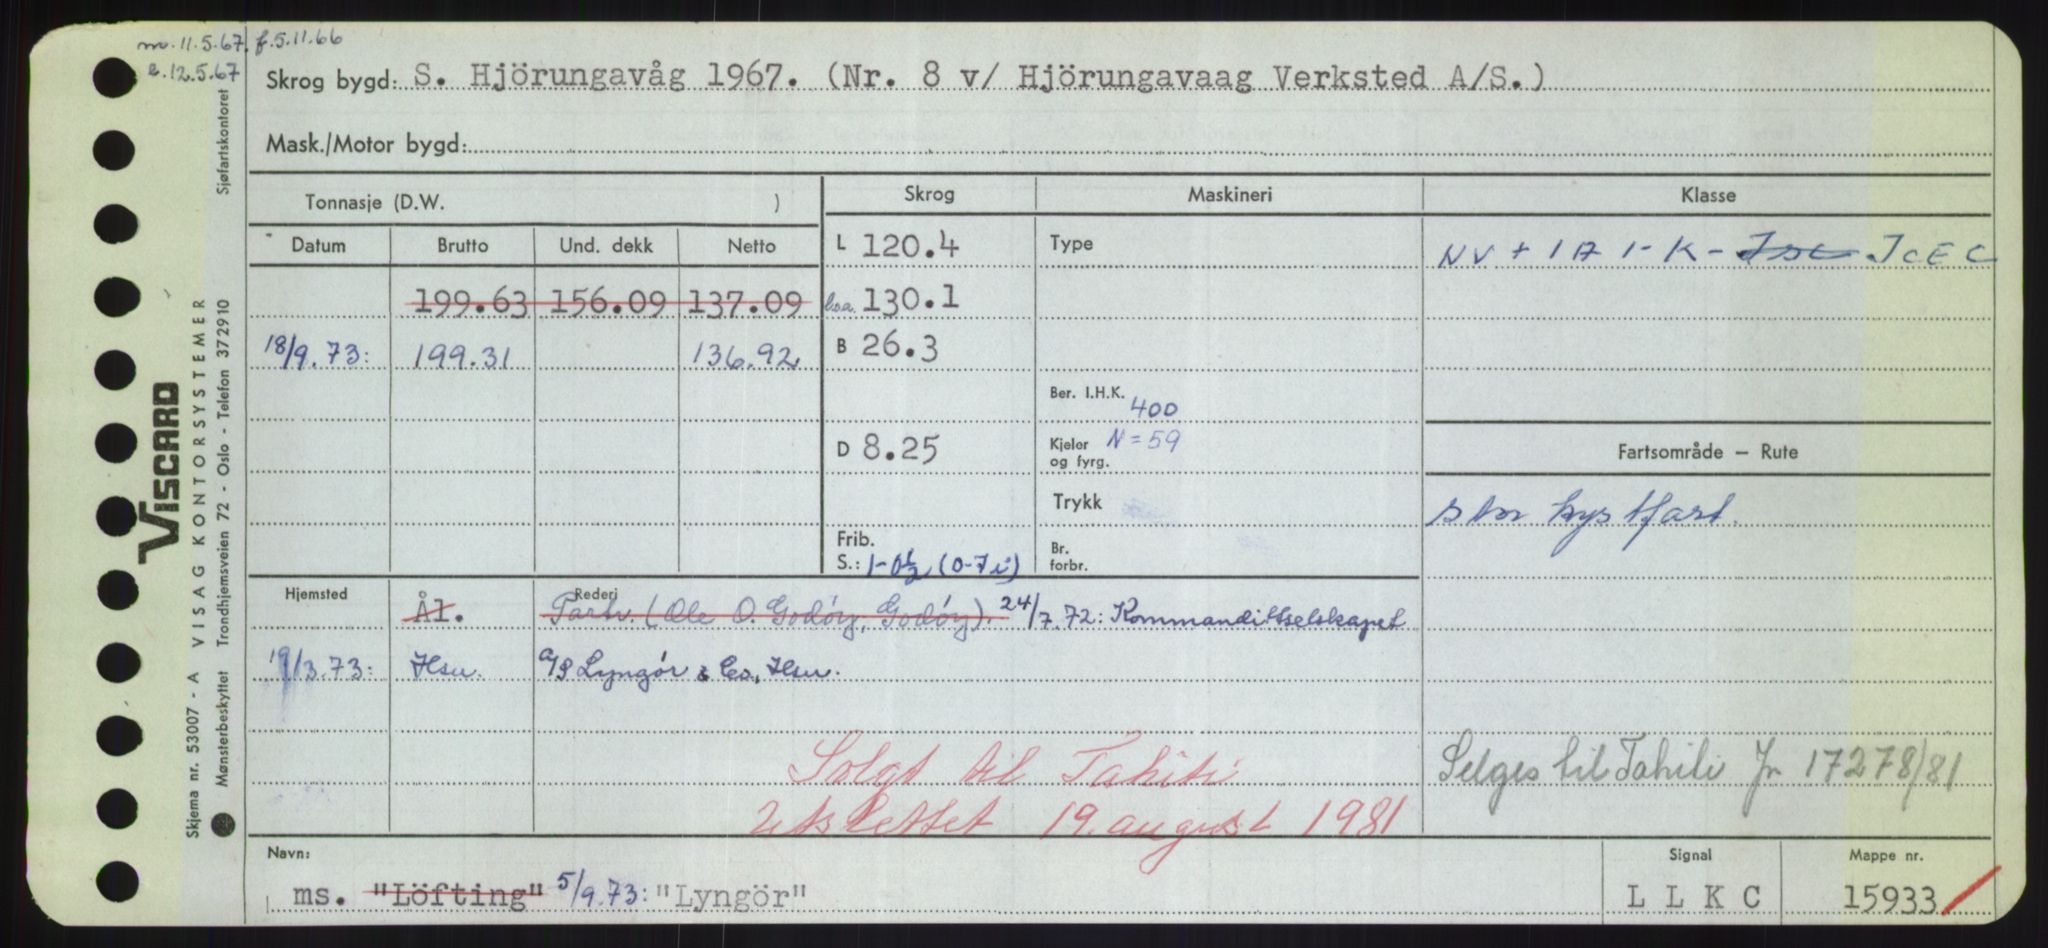 m. 11.5.67. f. 5.11.66
e. 12.5.67
Skrog bygd: S. Hjörungavåg 1967. (Nr. 8 v/ Hjörungavaag Verksted A/S.)
Mask./Motor bygd:
Tonnasje (D.W. ) Skrog Maskineri Klasse
Datum Brutto Und. dekk Netto L 120.4 Type NV + 1 A 1 - K - IceC
199.63 156.09 137.09 loa. 130.1
18/9.73: 199.31 136.92 B 26.3
Ber. I.H.K. 400
D 8.25 Kjeler og fyrg. N = 59 Fartsområde — Rute
Trykk stor kystfart.
Frib. S.: 1-0½ (0-7i) Br. forbr.
Hjemsted Ål. Rederi Partr. (Ole O. Godöy, Godöy). 24/7.72: Kommandittselskapet
19/3.73: Hsu. A/S Lyngör & Co., Hsu.
Solgt til Tahiti Selges til Tahiti Jn 17278/81
Utslettet 19. august 1981
Navn: Signal Mappe nr.
ms. "Löfting" 5/9.73: "Lyngör" L L K C 15933
VISCARD
Skjema nr. 53007 - A VISAG KONTORSYSTEMER
Mønsterbeskyttet Trondhjemsveien 72 - Oslo - Telefon 372910 Sjøfartskontoret